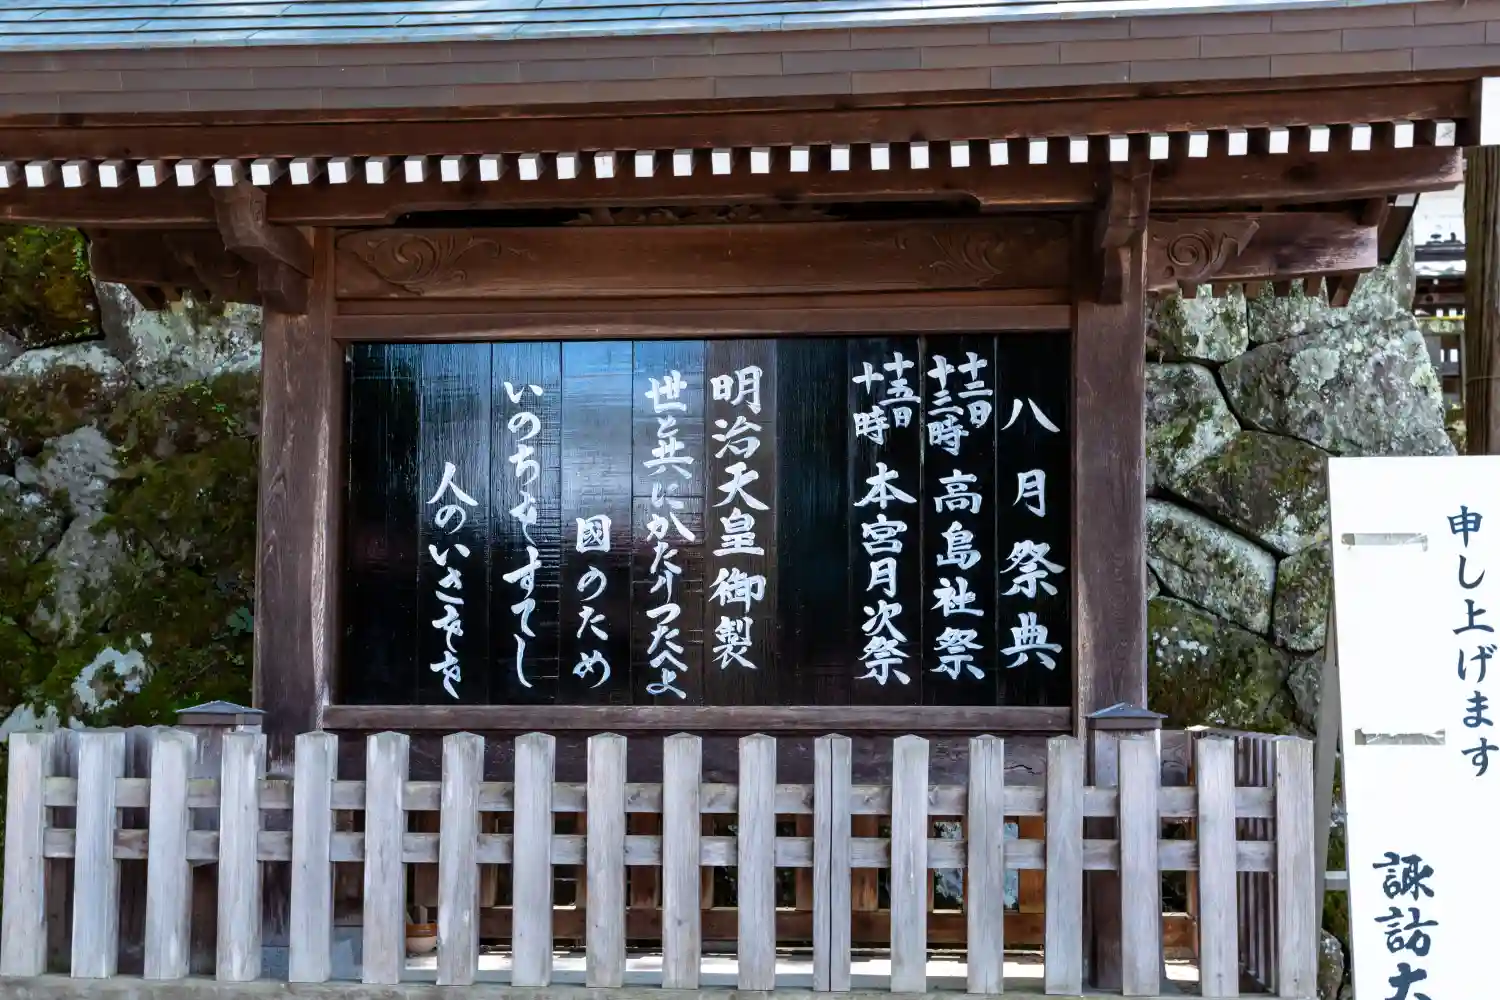 八月祭典
十二日
十三時
高島社祭
十五日
十時
本宮月次祭
明治天皇御製
世と共にかたりつたへよ
國のため
いのちをすてし
人のいさをを
申し上げます
諏訪大